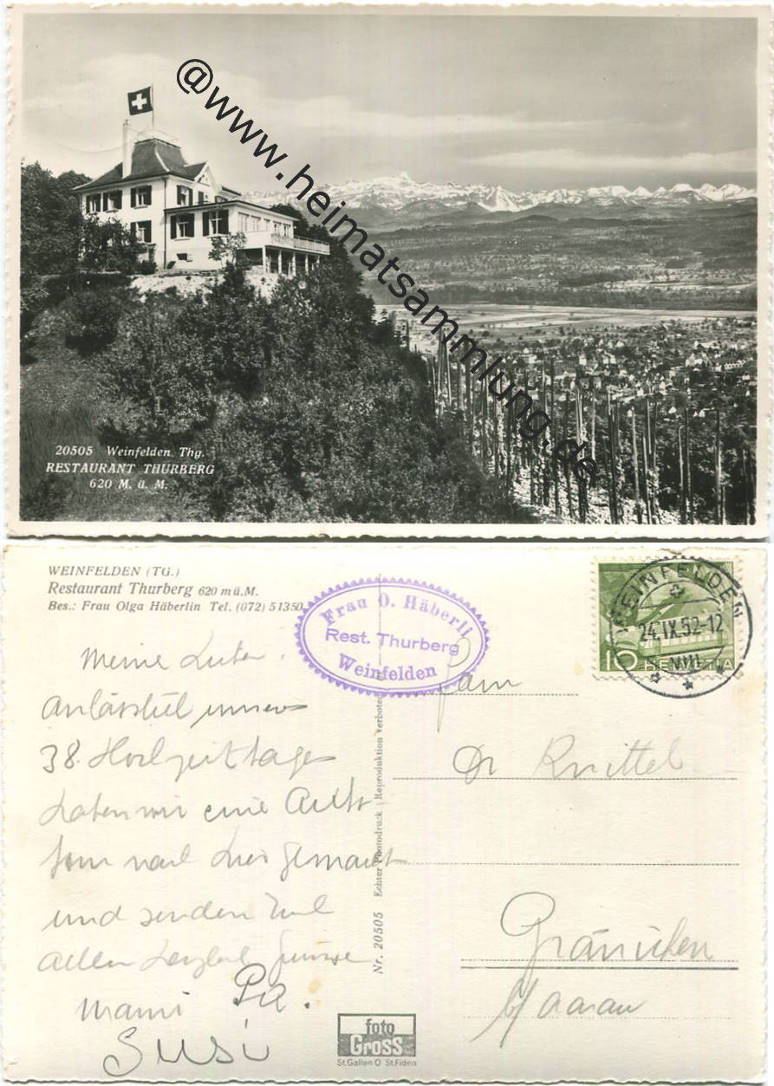 @www.heimatsammlung.de
20505 Weinfelden Thg.
RESTAURANT THURBERG
620 M. ü. M.
WEINFELDEN (TG.)
Restaurant Thurberg 620 m ü. M.
Bes.: Frau Olga Häberlin Tel. (072) 51350
Frau O. Häberli
Rest. Thurberg
Weinfelden
WEINFELDEN
24.IX.52-12
10 HELVETIA
Meine Lieben.
Anlässlich unseres
38. Hochzeitstages
haben wir eine Auto
hier gemacht
und senden Euch
allen herzliche Grüsse
Mami Pa.
Susi
Fam
Dr Knittel
Gränichen
b/Aarau
Nr. 20505 Echter Photodruck Reproduktion verboten
foto
GROSS
St.Gallen O St.Fiden